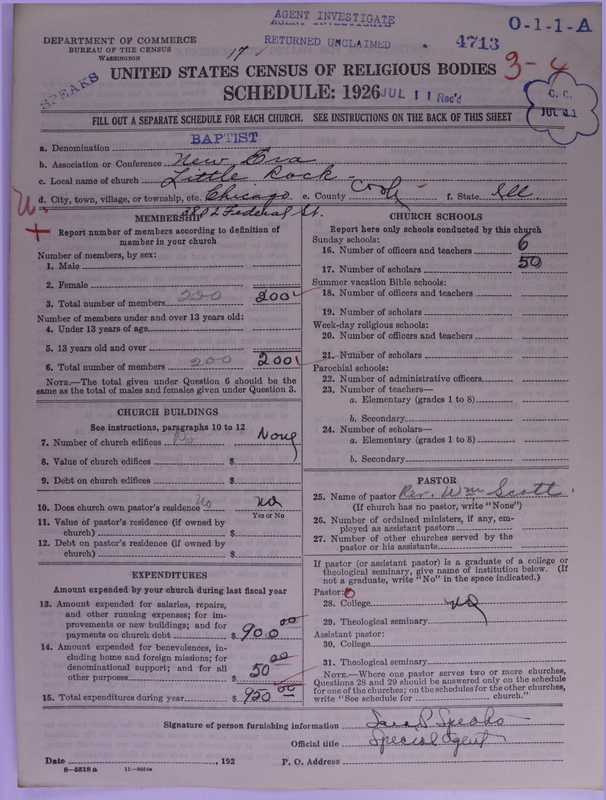 AGENT INVESTIGATE
AGENT INVESTIGATE
O-1-1-A
DEPARTMENT OF COMMERCE
BUREAU OF THE CENSUS
WASHINGTON
17
RETURNED UNCLAIMED
4713
SPEAKS
UNITED STATES CENSUS OF RELIGIOUS BODIES
3-4
SCHEDULE: 1926
JUL 11 Rec'd
C. C.
JUL 21
FILL OUT A SEPARATE SCHEDULE FOR EACH CHURCH. SEE INSTRUCTIONS ON THE BACK OF THIS SHEET
a. Denomination BAPTIST
b. Association or Conference New Era
c. Local name of church Little Rock
d. City, town, village, or township, etc. Chicago e. County Cook f. State Ill.
3802 Federal St.
MEMBERSHIP
Report number of members according to definition of
member in your church
Number of members, by sex:
1. Male
2. Female
3. Total number of members 200 200
Number of members under and over 13 years old:
4. Under 13 years of age
5. 13 years old and over
6. Total number of members 200 200
NOTE.—The total given under Question 6 should be
same as the total of males and females given under Question 3.
CHURCH BUILDINGS
See instructions, paragraphs 10 to 12
7. Number of church edifices No None
8. Value of church edifices $
9. Debt on church edifices $
10. Does church own pastor's residence No No
Yes or No
11. Value of pastor's residence (if owned by
church) $
12. Debt on pastor's residence (if owned by
church) $
EXPENDITURES
Amount expended by your church during last fiscal year
13. Amount expended for salaries, repairs,
and other running expenses; for im-
provements or new buildings; and for
payments on church debt $ 900 00
14. Amount expended for benevolences, in-
cluding home and foreign missions; for
denominational support; and for all
other purposes $ 50 00
15. Total expenditures during year $ 950 00
CHURCH SCHOOLS
Report here only schools conducted by this church
Sunday schools:
16. Number of officers and teachers 6
17. Number of scholars 50
Summer vacation Bible schools:
18. Number of officers and teachers
19. Number of scholars
Week-day religious schools:
20. Number of officers and teachers
21. Number of scholars
Parochial schools:
22. Number of administrative officers
23. Number of teachers—
a. Elementary (grades 1 to 8)
b. Secondary
24. Number of scholars—
a. Elementary (grades 1 to 8)
b. Secondary
PASTOR
25. Name of pastor Rev. Wm Scott
(If church has no pastor, write "None")
26. Number of ordained ministers, if any, em-
ployed as assistant pastors
27. Number of other churches served by the
pastor or his assistants
If pastor (or assistant pastor) is a graduate of a college or
theological seminary, give name of institution below. (If
not a graduate, write "No" in the space indicated.)
Pastor:
28. College No
29. Theological seminary
Assistant pastor:
30. College
31. Theological seminary
NOTE.—Where one pastor serves two or more churches,
Questions 28 and 29 should be answered only on the schedule
for one of the churches; on the schedules for the other churches,
write "See schedule for church."
Signature of person furnishing information Speaks
Official title Special Agent
Date , 192 P. O. Address
8-5518 a